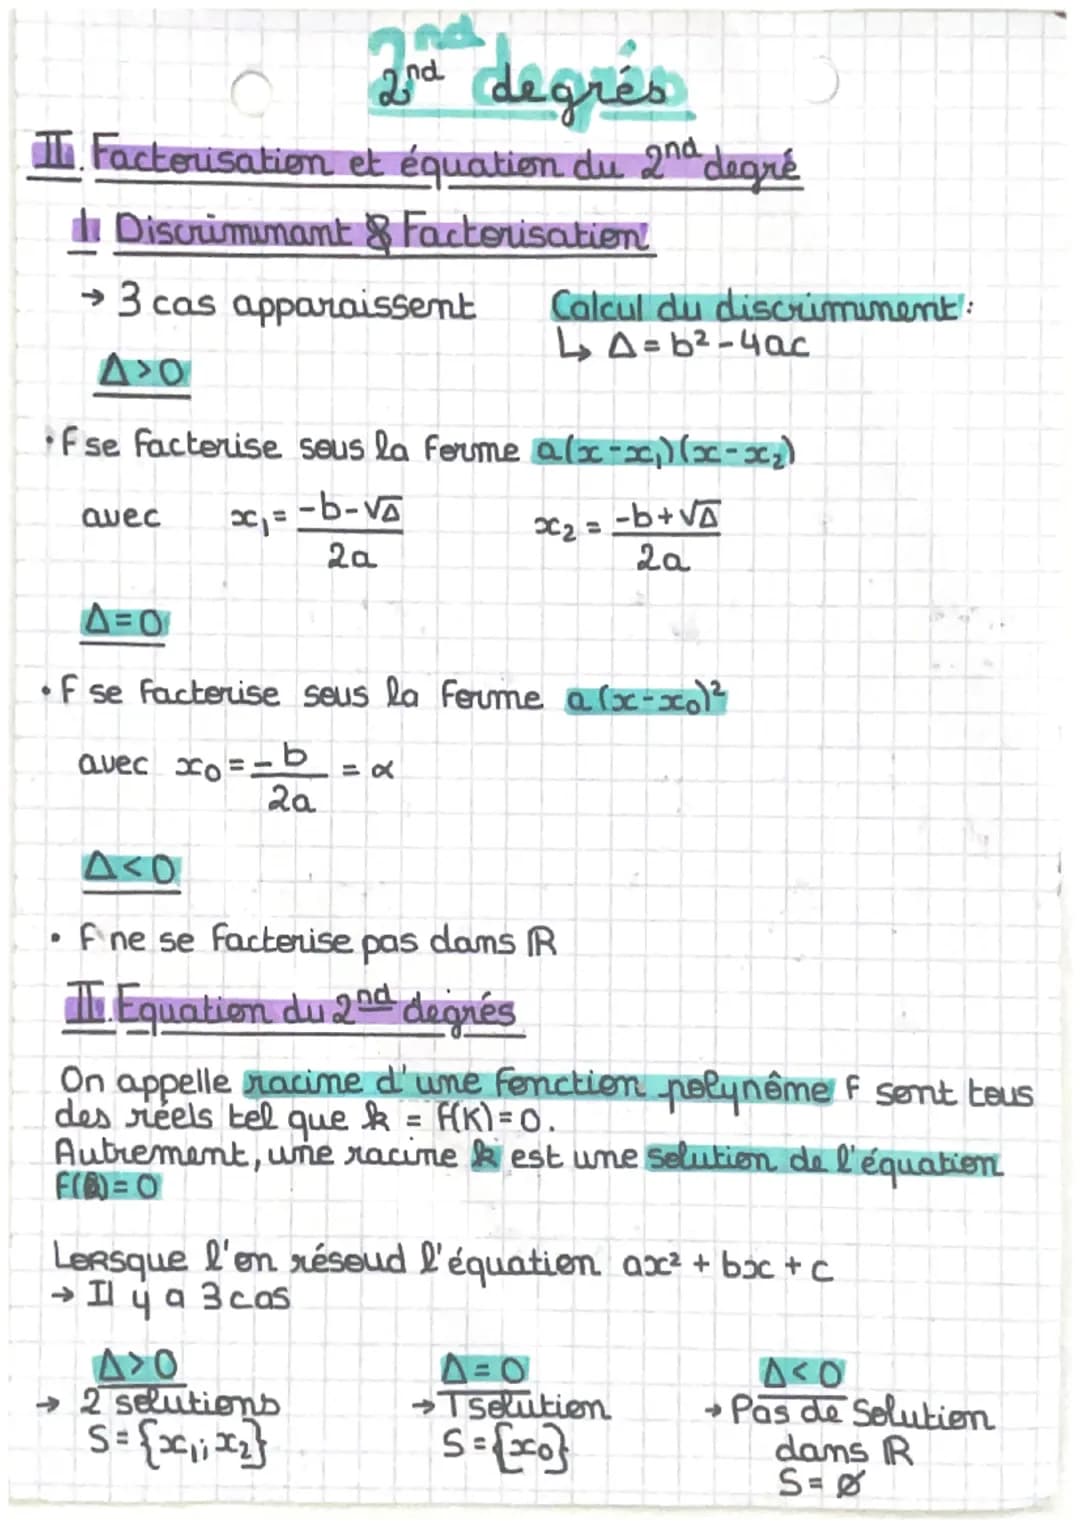 2nd degrés
II. Factorisation et équation du 2nd degré
1. Discriminant & Factorisation
→ 3 cas apparaissent
Calcul du discriminent :
↳ Δ = b² - 4ac
Δ > 0
• f se factorise sous la forme a(x-x₁)(x-x₂)
avec x₁ = (-b-√Δ)/2a x₂ = (-b+√Δ)/2a
Δ = 0
• f se factorise sous la forme a(x-x₀)²
avec x₀ = -b/2a = α
Δ < 0
• f ne se factorise pas dans ℝ
II. Equation du 2nd degrés
On appelle racine d'une fonction polynôme f sont tous
des réels tel que k = f(k) = 0.
Autrement, une racine k est une solution de l'équation
f(k) = 0
Lorsque l'on résoud l'équation ax² + bx + c
→ Il y a 3 cas
Δ > 0
→ 2 solutions
S = {x₁; x₂}
Δ = 0
→ 1 solution
S = {x₀}
Δ < 0
→ Pas de solution
dans ℝ
S = ∅